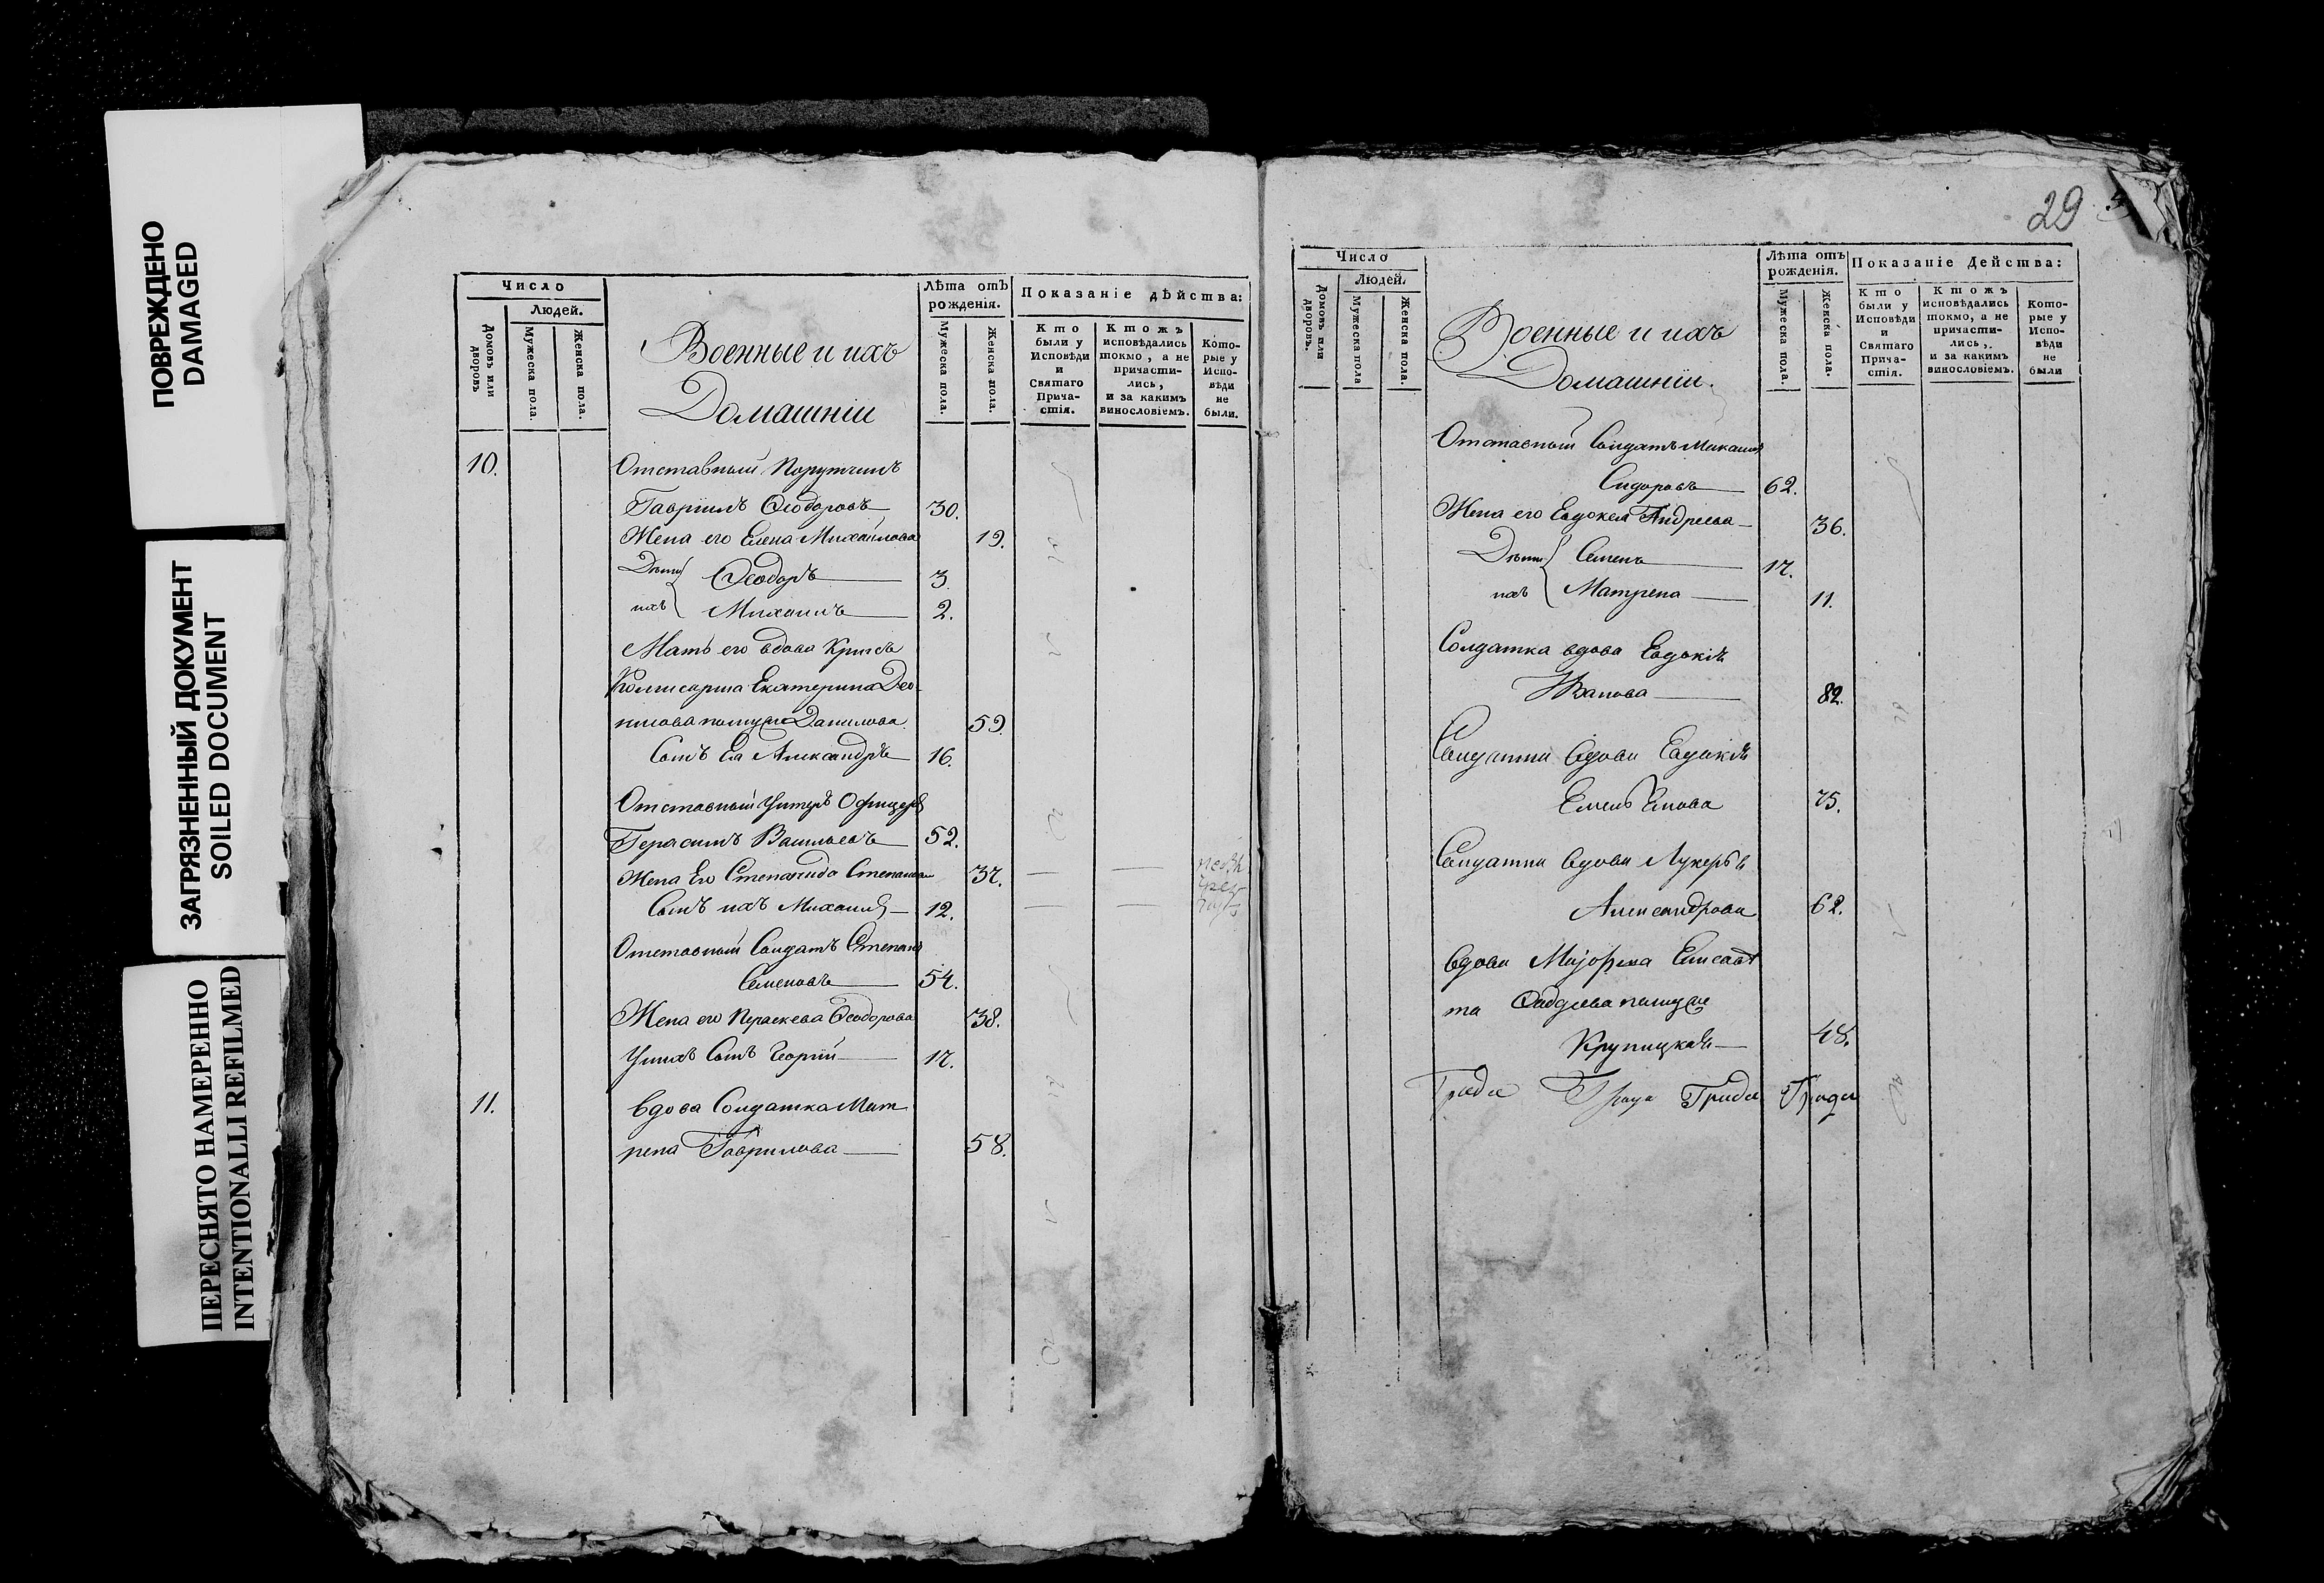 ПОВРЕЖДЕНО
DAMAGED
ЗАГРЯЗНЕННЫЙ ДОКУМЕНТ
SOILED DOCUMENT
ПЕРЕСНЯТО НАМЕРЕННО
INTENTIONALLI REFILMED
Число
Людей.
Домовъ или дворовъ
Мужеска пола.
Женска пола.
Военные и ихъ
Домашніи
Лѣта отъ рожденія.
Мужеска пола.
Женска пола.
Показаніе дѣйства:
Кто были у Исповѣди и Святаго Прича-стія.
Ктожъ исповѣдались токмо, а не причасти-лись, и за какимъ винословіемъ.
Кото-рые у Испо-вѣди не были.
10.
Отставный Порутчикъ
Гавріилъ Ѳеодоровъ 30.
Жена его Елена Михайлова 19.
Дѣти Ѳеодоръ 3
ихъ Михаилъ 2.
Мать его вдова
Комисарша Екатерина Део-
Данилова 59
Сынъ Ея Александръ 16.
Отставный Унтеръ Офицеръ
Герасимъ Васильевъ 52.
Жена Его Степанида Степанова 37.
Сынъ ихъ Михаилъ 12.
Отставный Солдатъ Степанъ
Семеновъ 54.
Жена его Параскева Ѳеодорова 38.
Унихъ Сынъ Георгій 17.
11. вдова Солдатка Мат
рена Гаврилова 58.
29
Число
Людей.
Домовъ или дворовъ.
Мужеска пола
Женска пола.
Военные и ихъ
Домашніи.
Лѣта отъ рожденія.
Мужеска пола.
Женска пола.
Показаніе Действа:
Кто были у Исповѣди и Святаго Прича-стія.
Ктожъ исповѣдались токмо, а не причасти-лись, и за какимъ винословіемъ.
Кото-рые у Испо-вѣди не были
Отставный Солдатъ Михаилъ
Сидоровъ 62.
Жена его Евдокея Андреева 36.
Дѣти Семенъ 17.
ихъ Матрена 11.
Солдатка вдова Евдокія
Иванова 82.
Солдатка вдова Евдокія
Емельянова 75.
Солдатка вдова Лукерья
Александрова 62.
вдова Маіорша Елисаве
та
Крупицкая 48.